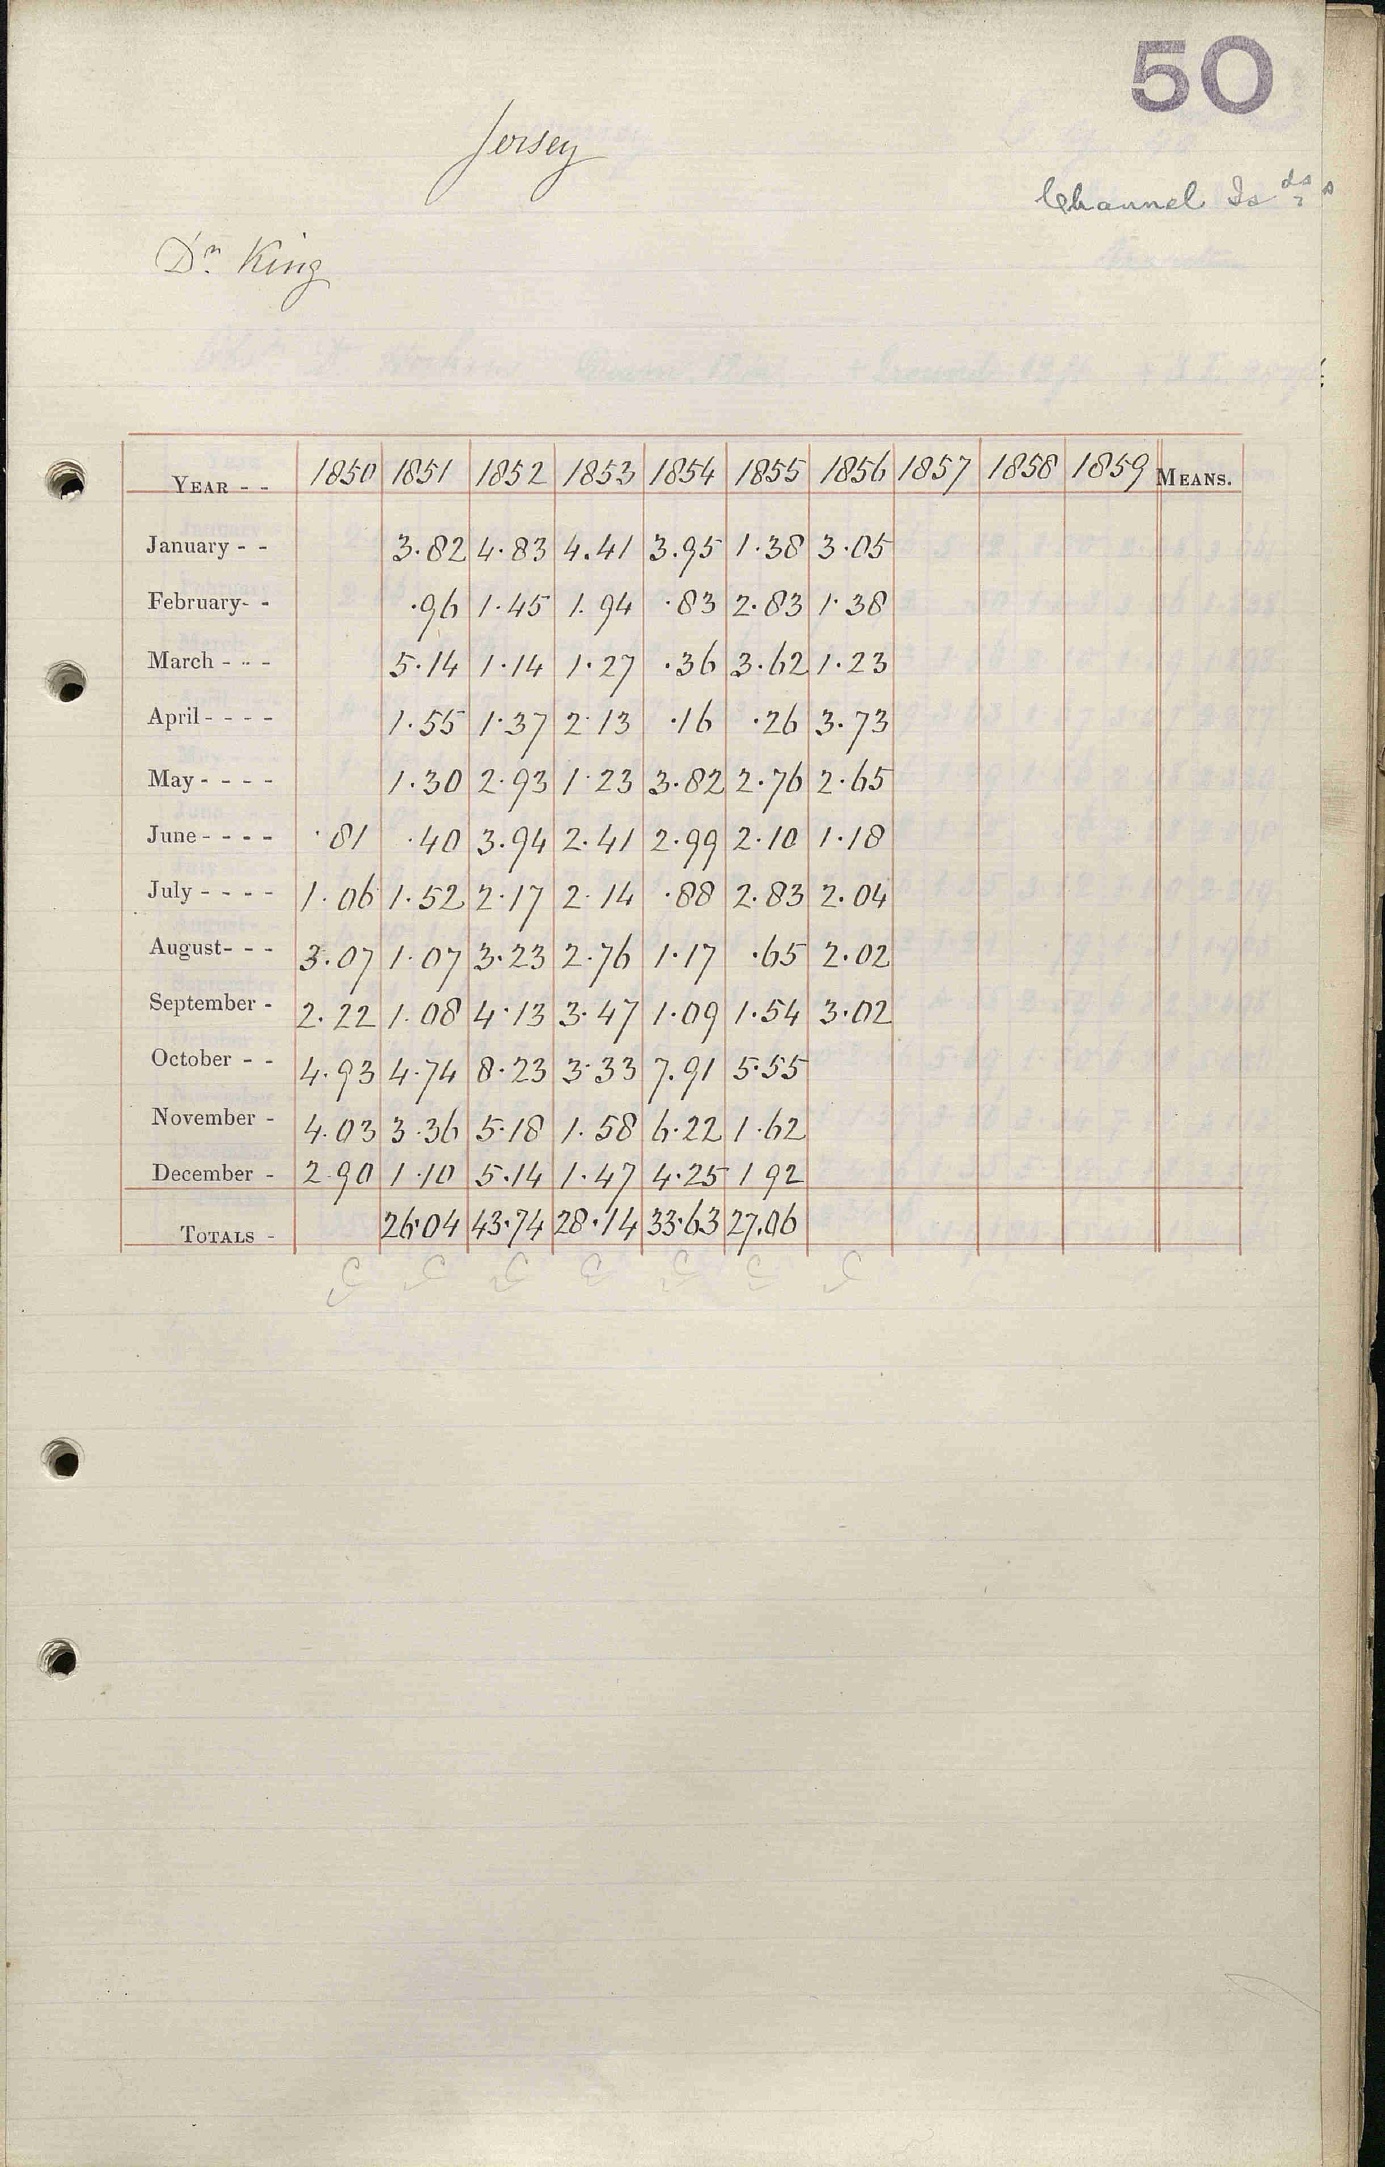 50
Jersey
Channel Is ds
Dr. King
YEAR - - 1850 1851 1852 1853 1854 1855 1856 1857 1858 1859 MEANS.
January - - 3.82 4.83 4.41 3.95 1.38 3.05
February- - .96 1.45 1.94 .83 2.83 1.38
March - - - 5.14 1.14 1.27 .36 3.62 1.23
April - - - - 1.55 1.37 2.13 .16 .26 3.73
May - - - - 1.30 2.93 1.23 3.82 2.76 2.65
June - - - - .81 .40 3.94 2.41 2.99 2.10 1.18
July - - - - 1.06 1.52 2.17 2.14 .88 2.83 2.04
August- - - 3.07 1.07 3.23 2.76 1.17 .65 2.02
September - 2.22 1.08 4.13 3.47 1.09 1.54 3.02
October - - 4.93 4.74 8.23 3.33 7.91 5.55
November - 4.03 3.36 5.18 1.58 6.22 1.62
December - 2.90 1.10 5.14 1.47 4.25 1 92
TOTALS - 26.04 43.74 28.14 33.63 27.06